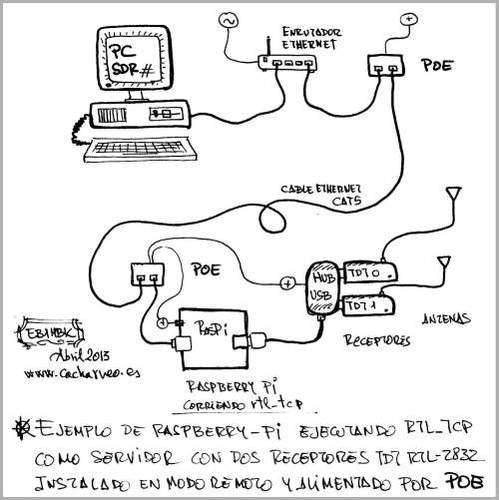 PC
SDR#
ENRUTADOR
ETHERNET
POE
CABLE ETHERNET
CAT5
POE
HUB
USB
TDT 0
TDT 1
ANTENAS
RECEPTORES
RASPI
EB1HBK
Abril 2013
www.cacharreo.es
RASPBERRY Pi
CORRIENDO rtl_tcp
EJEMPLO DE RASPBERRY-Pi EJECUTANDO RTL_TCP
COMO SERVIDOR CON DOS RECEPTORES TDT RTL-2832
INSTALADO EN MODO REMOTO Y ALIMENTADO POR POE